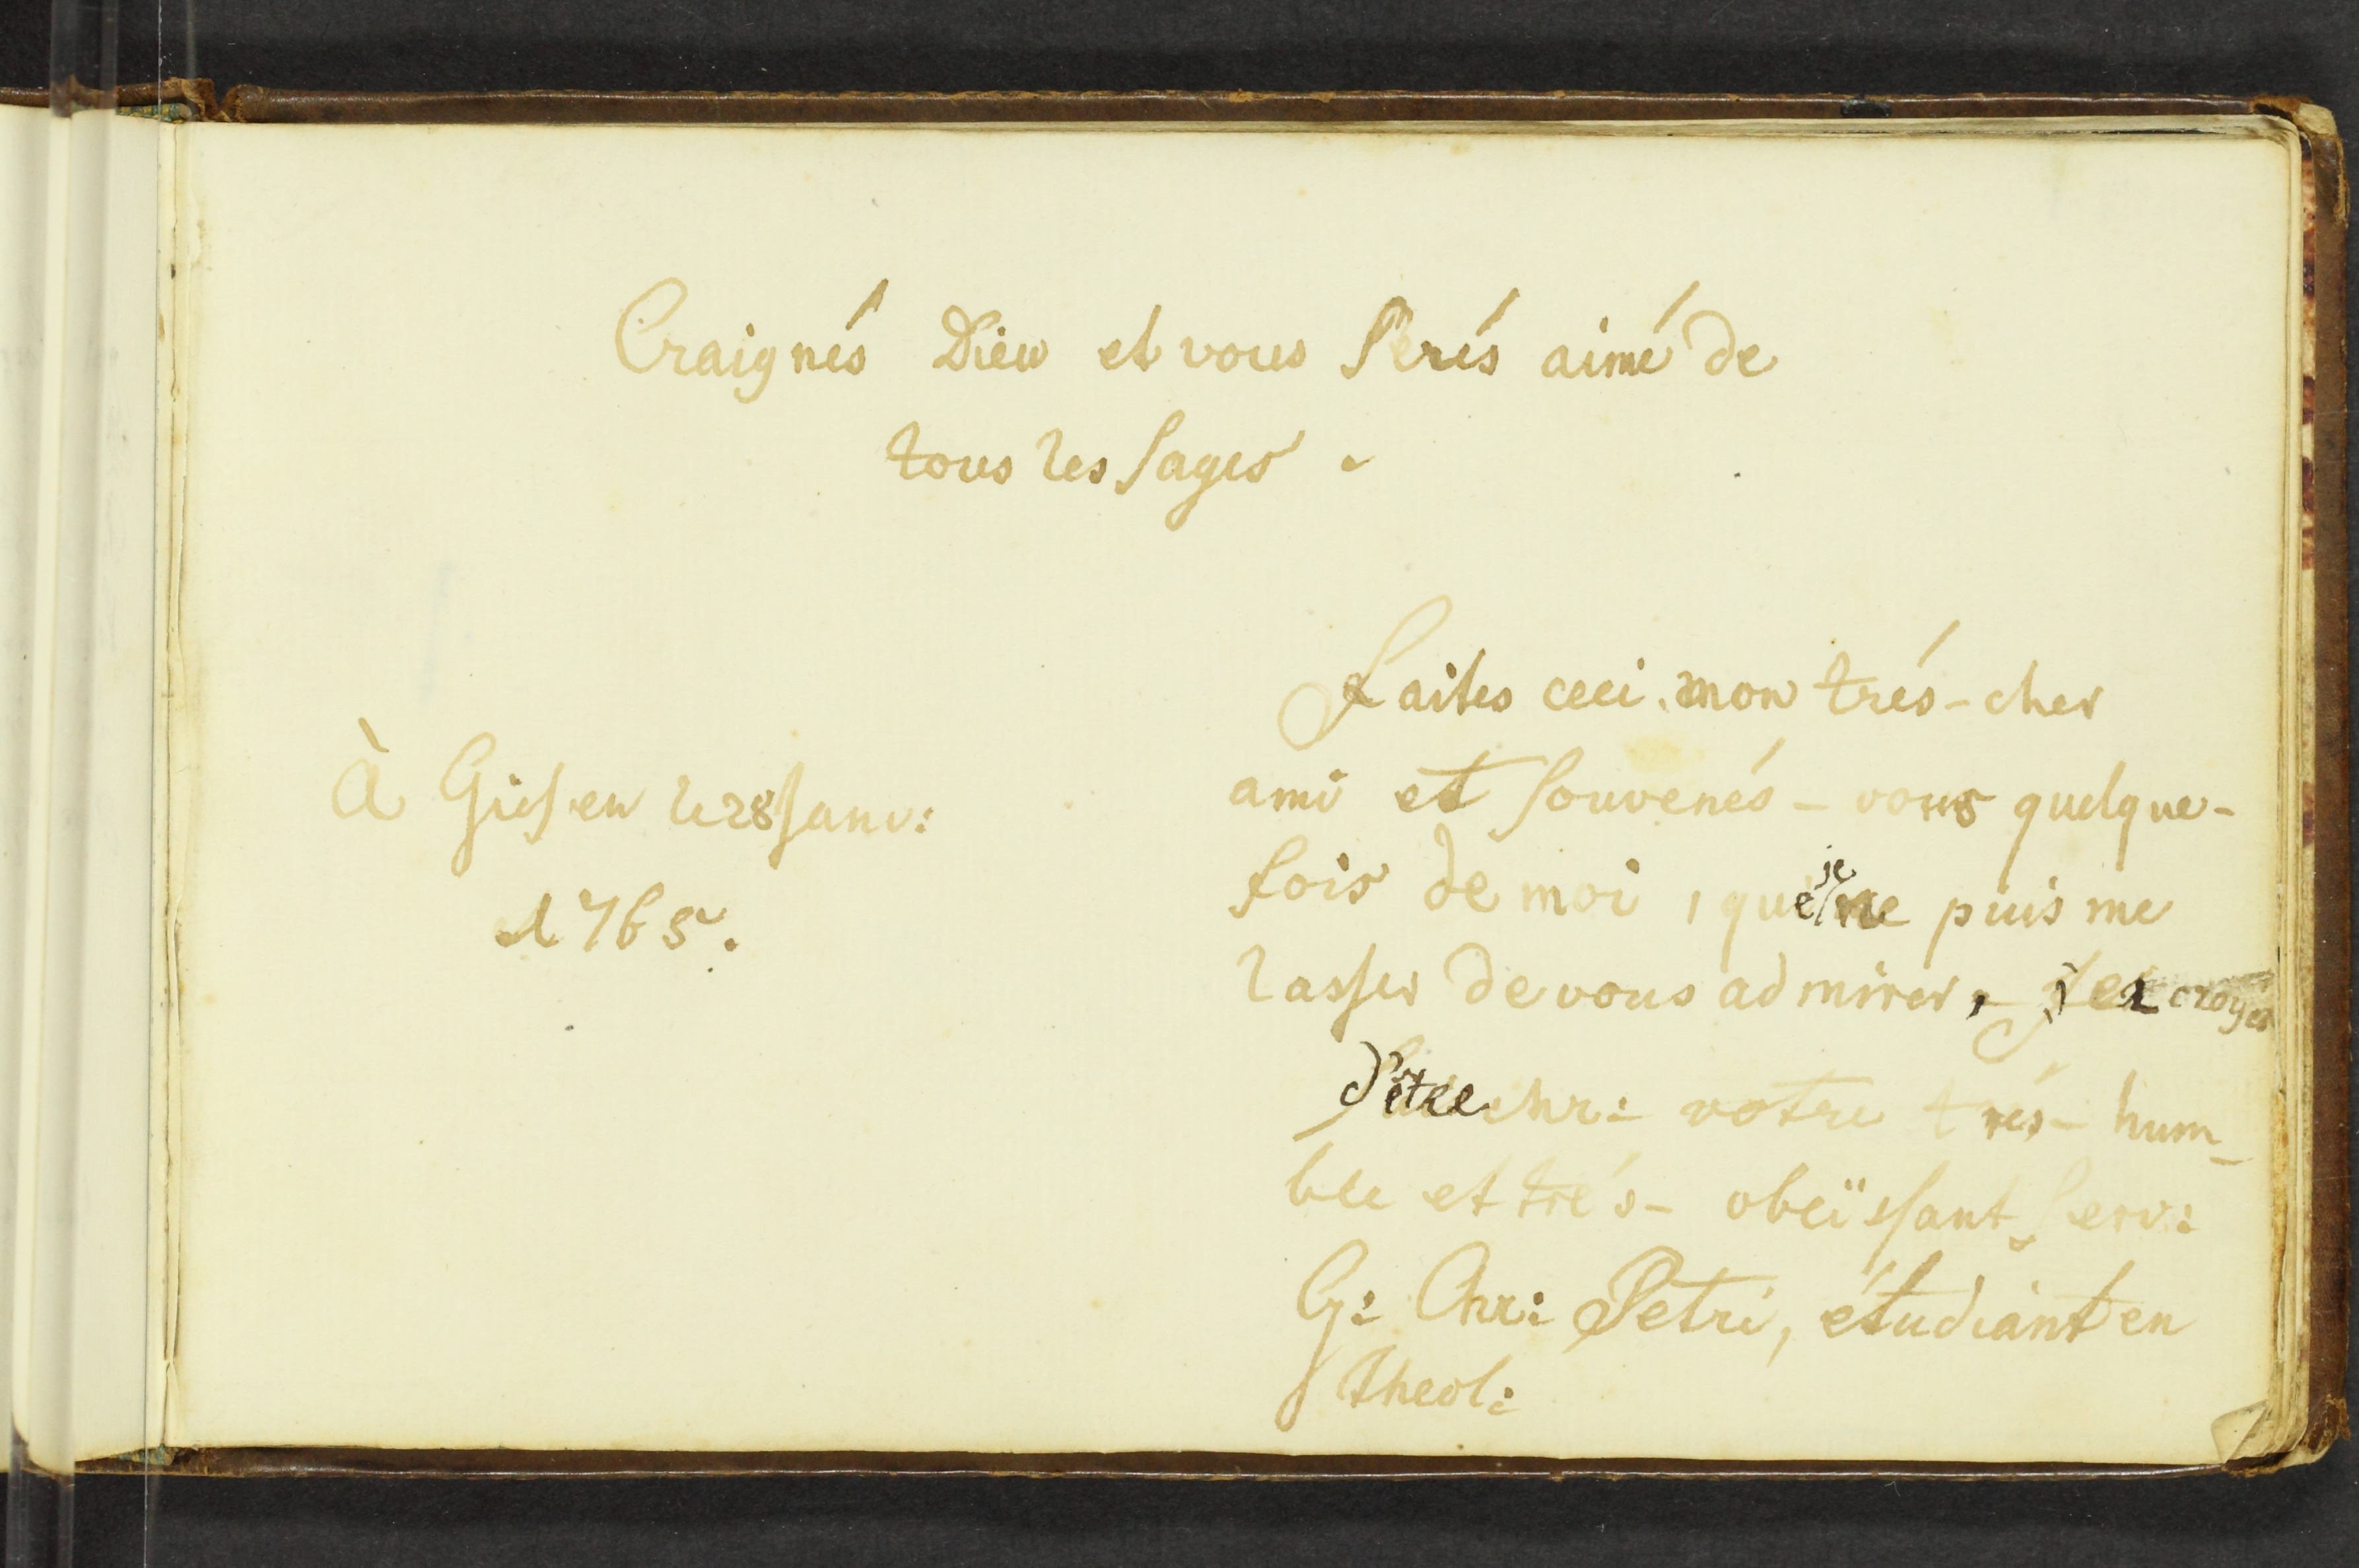 Craignés Dieu et vous serés aimé de
tous les sages.
Faites ceci, mon trés-cher
ami et souvenés-vous quelque-
fois de moi, que je ne puis me
lasser de vous admirer,
d'être votre trés-hum-
ble et trés-obeïssant serv:
G: Chr: Petri, étudiant en
theol:
À Giessen le 28 Janv:
1765.